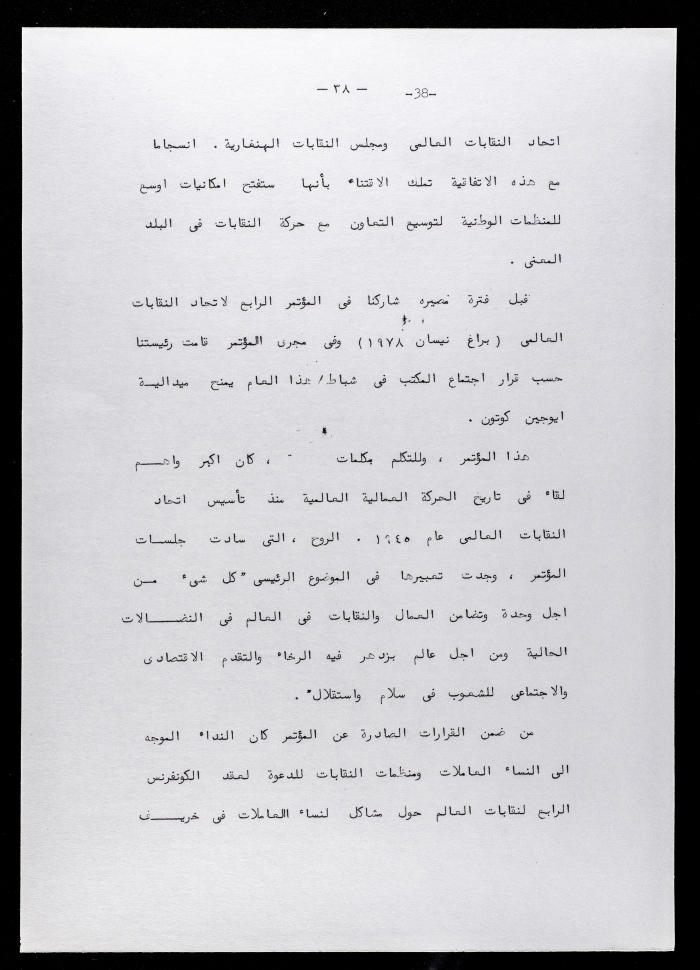 — ٣٨ — -38-
اتحاد النقابات العالمى ومجلس النقابات الهنغارية . انسجاما
مع هذه الاتفاقية تملك الاقتناء بأنها ستفتح امكانيات اوسع
للمنظمات الوطنية لتوسيع التعاون مع حركة النقابات فى البلد
المعنى .
قبل فترة قصيره شاركنا فى المؤتمر الرابع لاتحاد النقابات
العالمى ( براغ نيسان ١٩٧٨ ) وفى مجرى المؤتمر قامت رئيستنا
حسب قرار اجتماع المكتب فى شباط/ هذا العام يمنح ميداليـة
ايوجين كوتون .
هذا المؤتمر ، وللتكلم بكلمات ، كان اكبر واهـــم
لقاء فى تاريخ الحركة العمالية العالمية منذ تأسيس اتحاد
النقابات العالمى عام ١٩٤٥ . الروح ، التى سادت جلســات
المؤتمر ، وجدت تعبيرها فى الموضوع الرئيسى "كل شىء مــن
اجل وحدة وتضامن العمال والنقابات فى العالم فى النضــالات
الحالية ومن اجل عالم يزدهر فيه الرخاء والتقدم الاقتصادى
والاجتماعى للشعوب فى سلام واستقلال" .
من ضمن القرارات الصادرة عن المؤتمر كان النداء الموجه
الى النساء العاملات ومنظمات النقابات للدعوة لعقد الكونفرنس
الرابع لنقابات العالم حول مشاكل لنساء العاملات فى خريــف